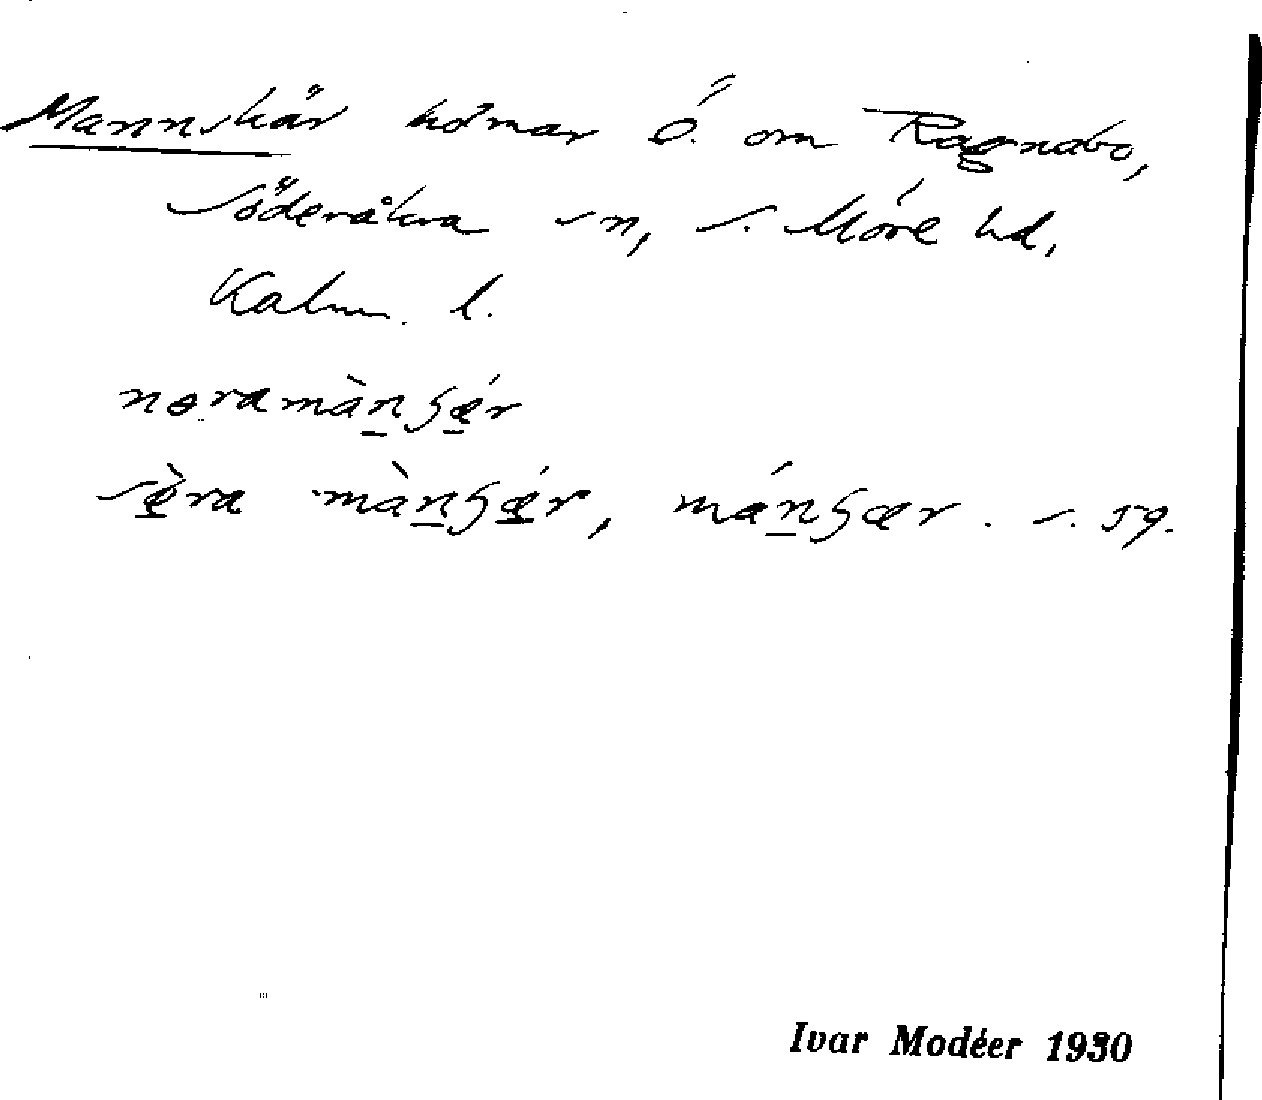 Mannskär holmar Ö. om Ragnabo,
Söderåkra sn, S. Möre hd,
Kalm. l.
noramànʂǽr
sèra mànʂǽr, mánʂær. s. 59.
Ivar Modéer 1930